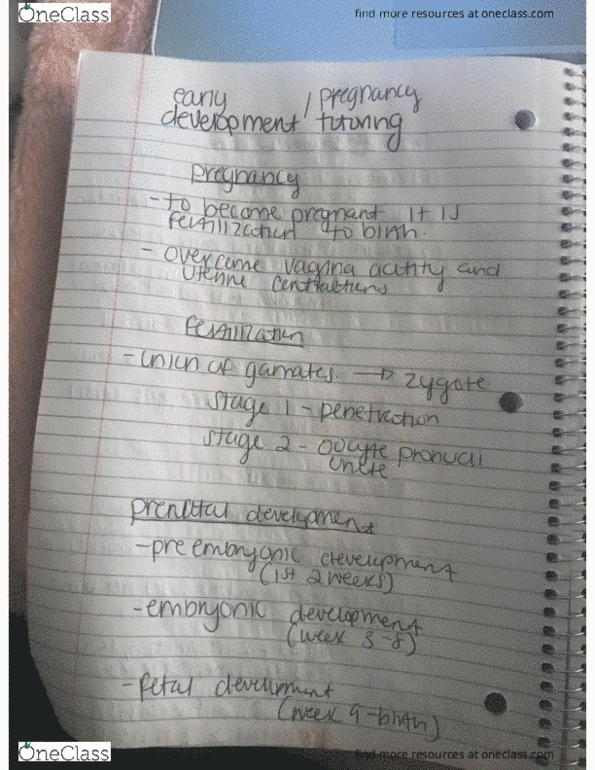 OneClass
find more resources at oneclass.com
early / pregnancy
development tutoring
pregnancy
- to become pregnant it is
fertilization to birth.
- overcome vagina acitity and
uterine contractions
fertilization
- union of gamates. → zygote
stage 1 - penetration
stage 2 - oocyte pronucli
unite
prenatal development
- pre embryonic development
(1st 2 weeks)
- embryonic development
(week 3-8)
- fetal development
(week 9-birth)
OneClass
find more resources at oneclass.com